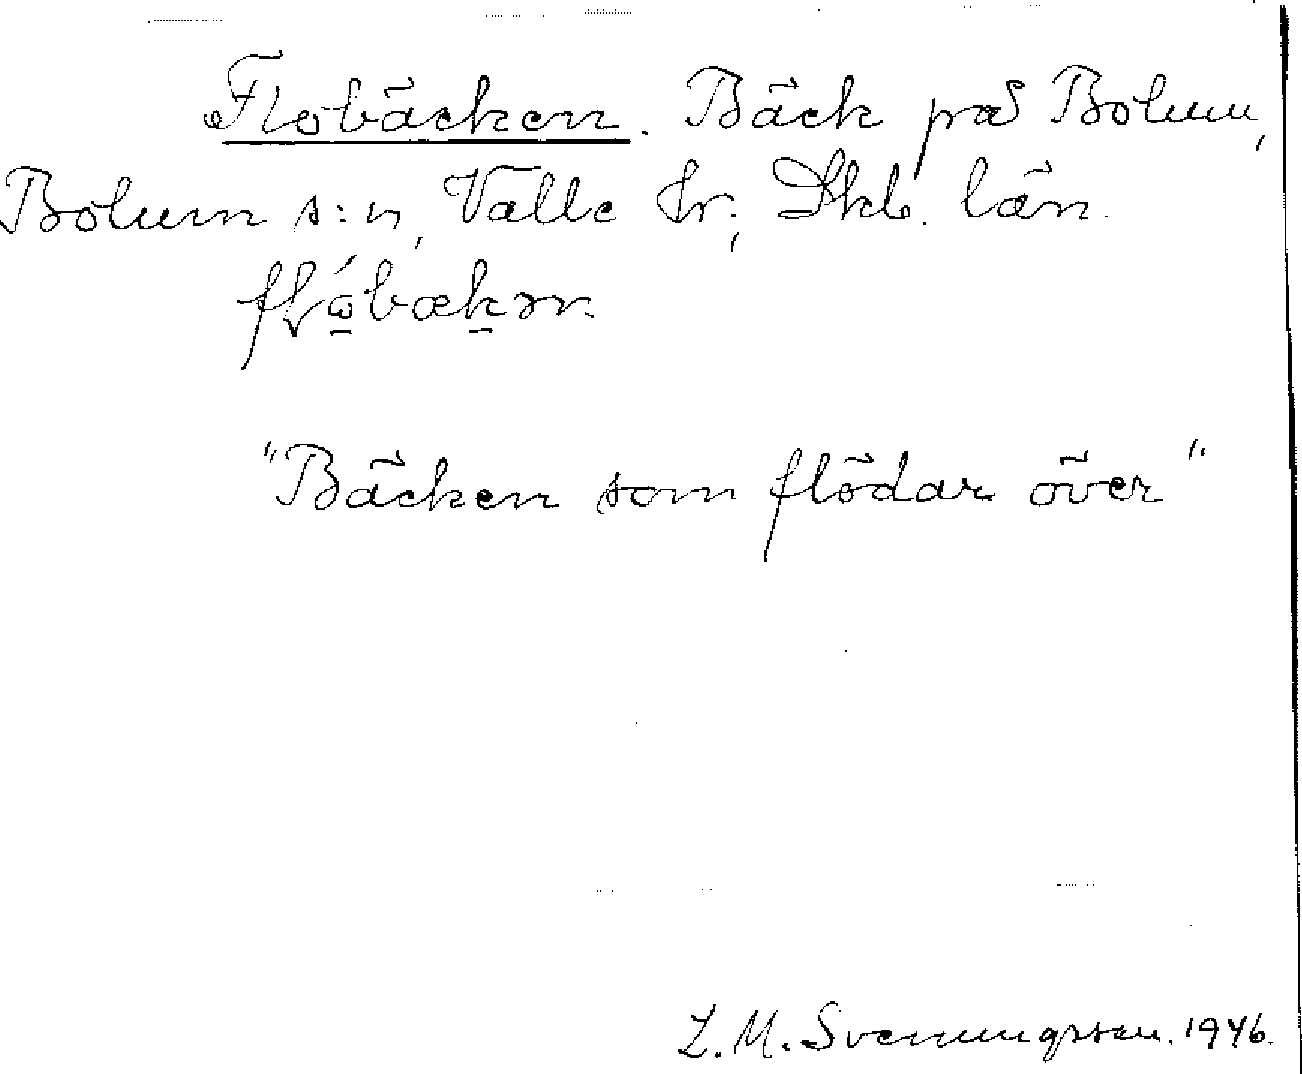 Flobäcken. Bäck på Bolum,
Bolum s:n, Valle hr; Skb. län.
flώ̲bæk̲ən.
"Bäcken som flödar över"
L. M. Svenungsson. 1946.